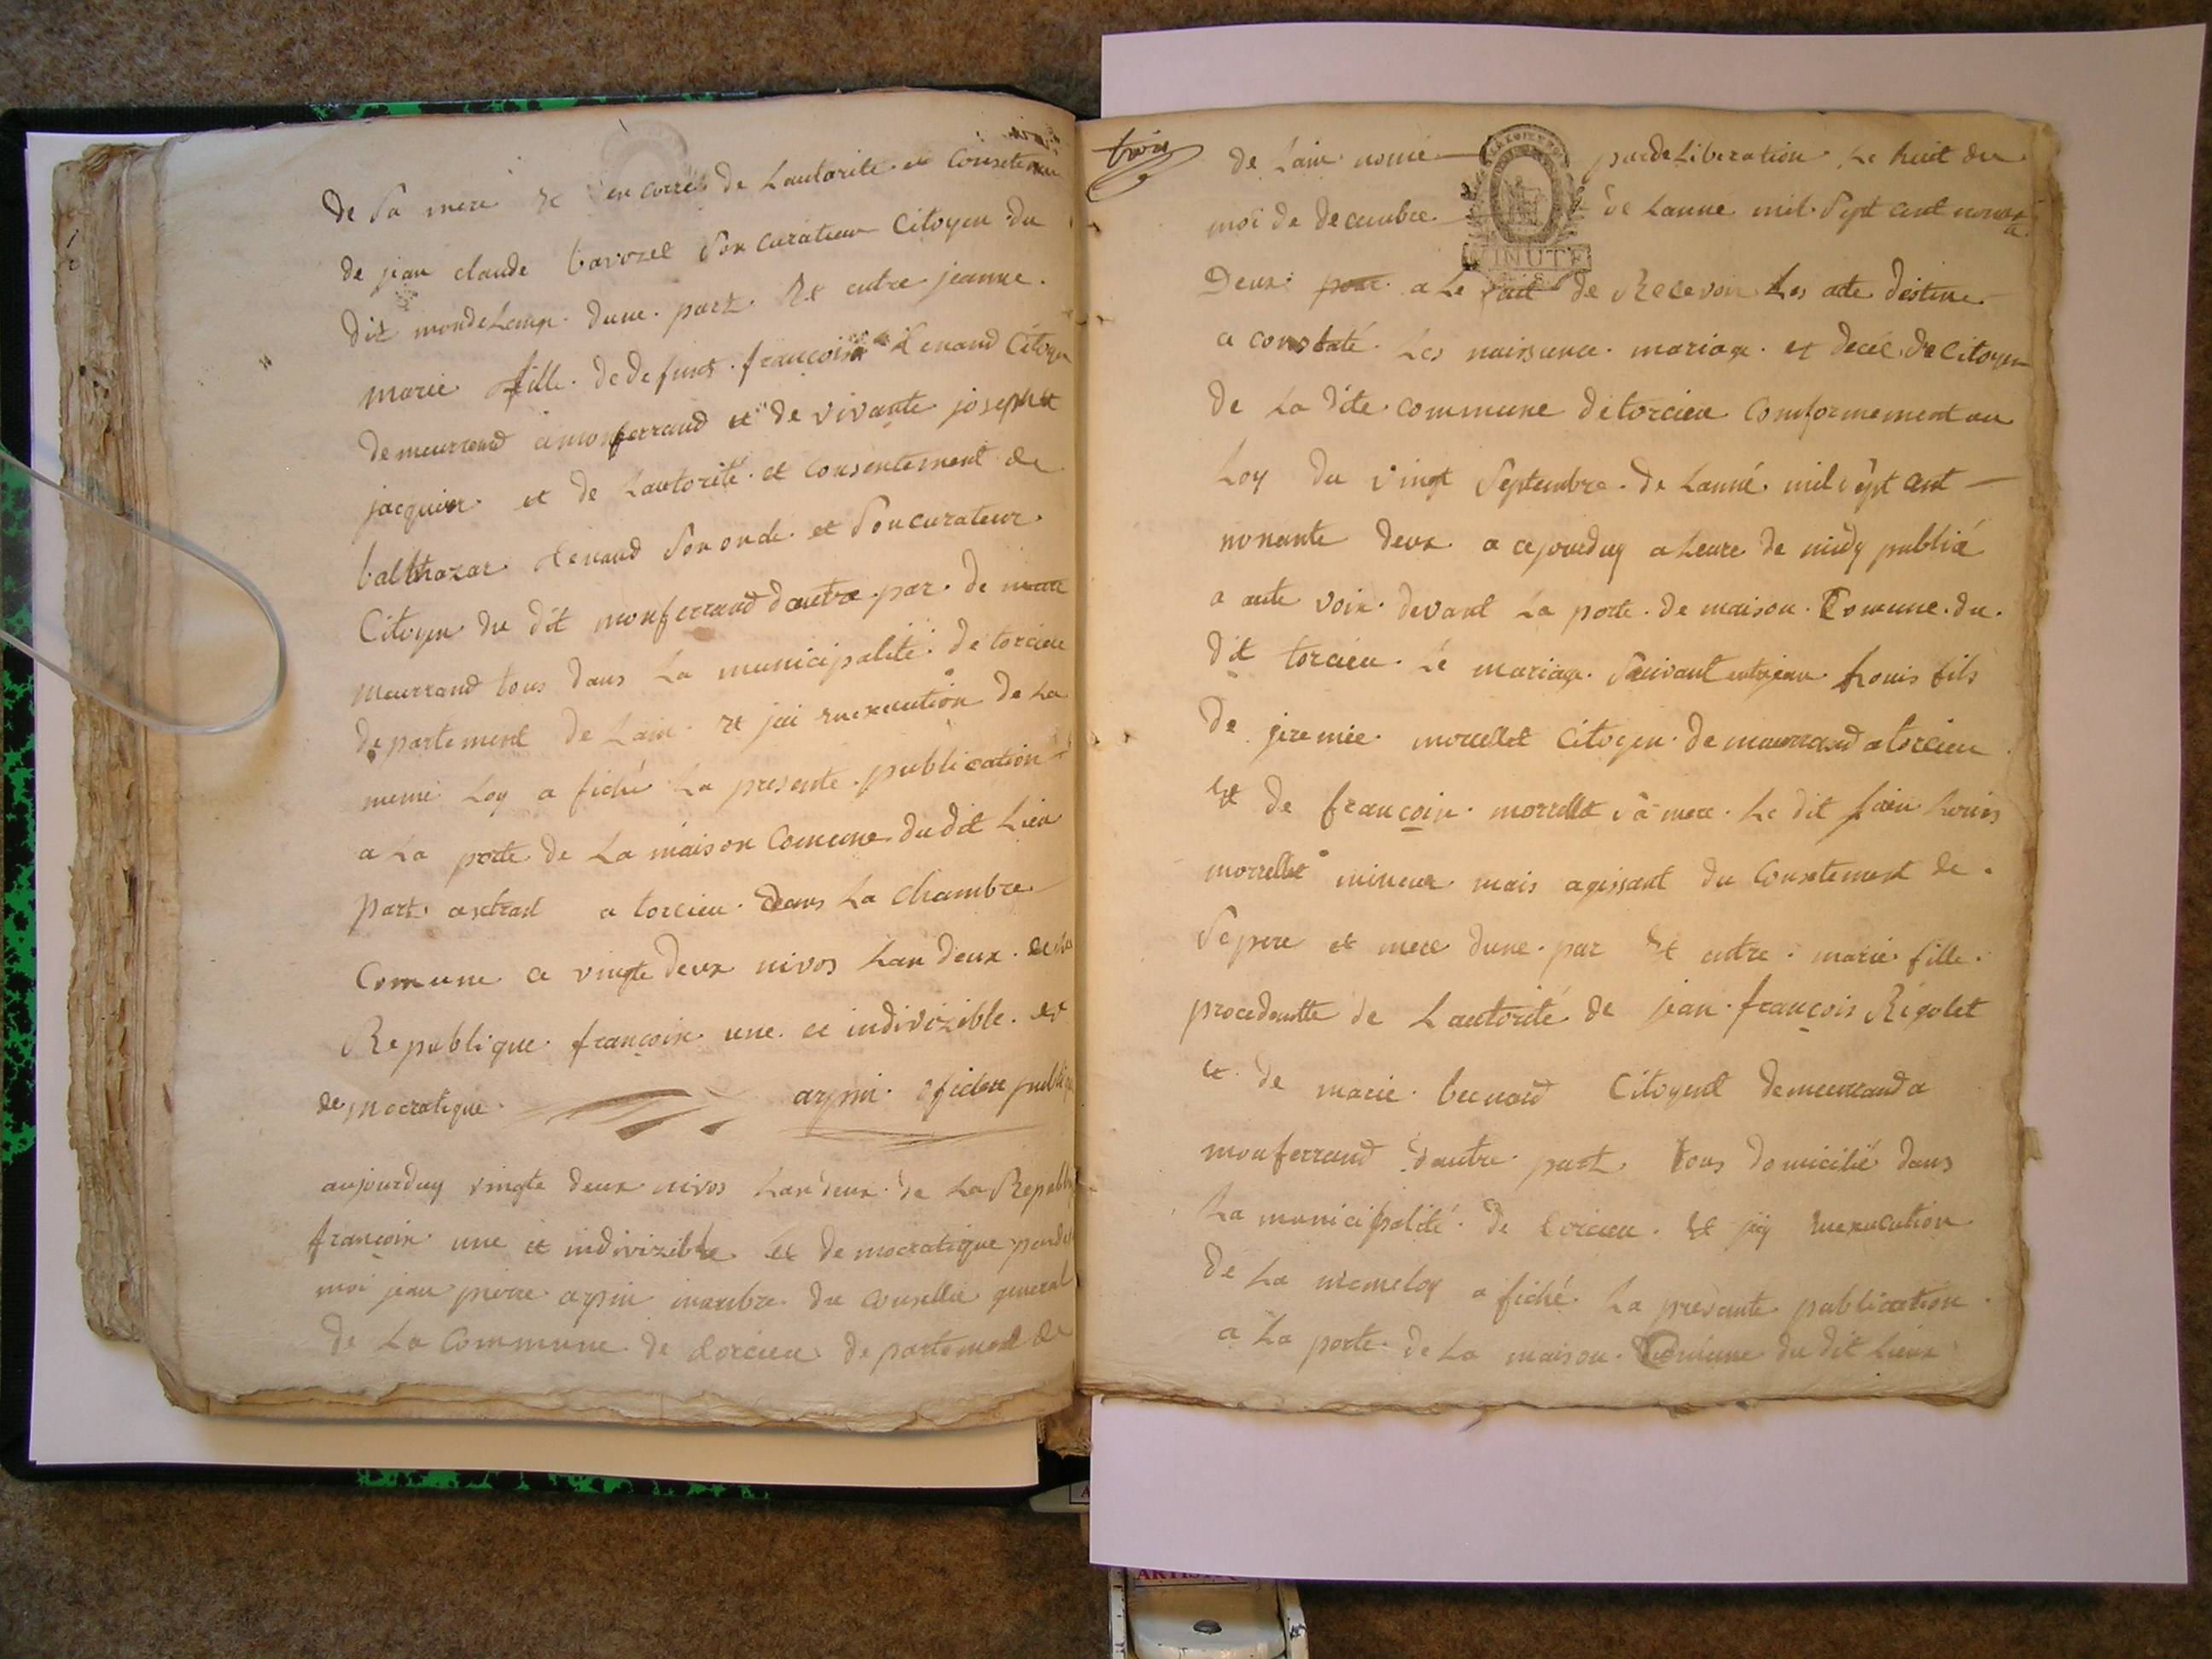 de sa mere et en corre de Lautorite et Consete
de jean claude bavozel Son Curateur Citoyen du
dit dune part Et entre jeanne
marie fille de defunt françoise Renand Citoyen
demeurrand a monferrand et de vivante josephte
jacquier et de Lautorité et consentement de
balthazar Renand Son oncle et Son curateur
Citoyen du dit monferrand dautre par de
meurrand tous dans La municipalité de torcieu
departement de Lain et jai enexecution de La
meme Loy a fiché La presente publication
a La porte de La maison Comune du dit Lieu
part a torcieu dans La chambre
Comune ce vingte deux nivos Lan deux de La
Republique françoise une et indivizible et
democratique arpin oficiere public
aujourduy vingte deux nivos Lan deux de La Republi
françoise une et indivizible et democratique pardev
moi jean pierre arpin manbre du consellie general
de La Commune de torcieu departement de
trois
de Lain nomé par deLiberation Le huit du
moi de decembre de Lanne mil Sept cent nonante
MINUTE
Deux pour a Le fait de Recevoir Les acte destine
a constaté Les naissance mariage et decé de Citoyen
de La dite commune de torcieu comformement au
Loy du vingt Septembre de Lanné mil sept cent
nonante deux a cejourduy a heure de midy publié
a aute voix devant La porte de maison Comune du
dit torcieu Le mariage Suivant entre jean Louis fils
de jeremie morellet Citoyen demeurrand a torcieu
Et de françoise morrellet sa mere Le dit jean Louis
morrellet mineur mais agissant du Consetement de
Se pere et mere dune par Et entre marie fille
procedantte de Lautorité de jean françois Rigolet
et de marie bernard Citoyent demeurrand a
monferrand dautre part tous domicilié dans
La municipalité de torcieu Et jey enexecution
de La meme loy a fiché La presente publication
a La porte de La maison Comune du dit Lieux